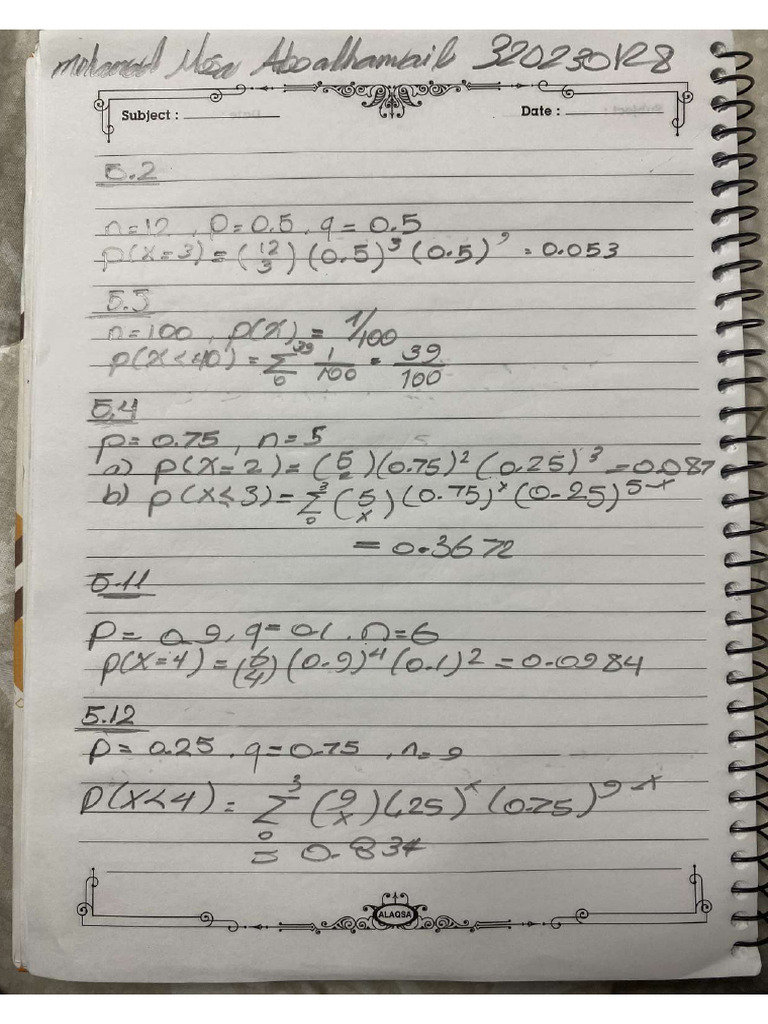 Mohamed Mosa Aboalhamrail 320230128
Subject :
Date :
5.2
n=12 , p=0.5, q=0.5
p(x=3)=(12 3)(0.5)³(0.5)⁹=0.053
5.3
n=100, p(x)=1/100
p(x<40)=Σ 39 0 1/100=39/100
5.4
p=0.75, n=5
a) p(x=2)=(5 2)(0.75)²(0.25)³=0.087
b) p(x≤3)=Σ 3 0 (5 x)(0.75)ˣ(0.25)⁵⁻ˣ
=0.3672
5.11
p=0.9, q=0.1, n=6
p(x=4)=(6 4)(0.9)⁴(0.1)²=0.0984
5.12
p=0.25, q=0.75, n=9
p(x<4)=Σ 3 0 (9 x)(.25)ˣ(0.75)⁹⁻ˣ
=0.834
ALAQSA